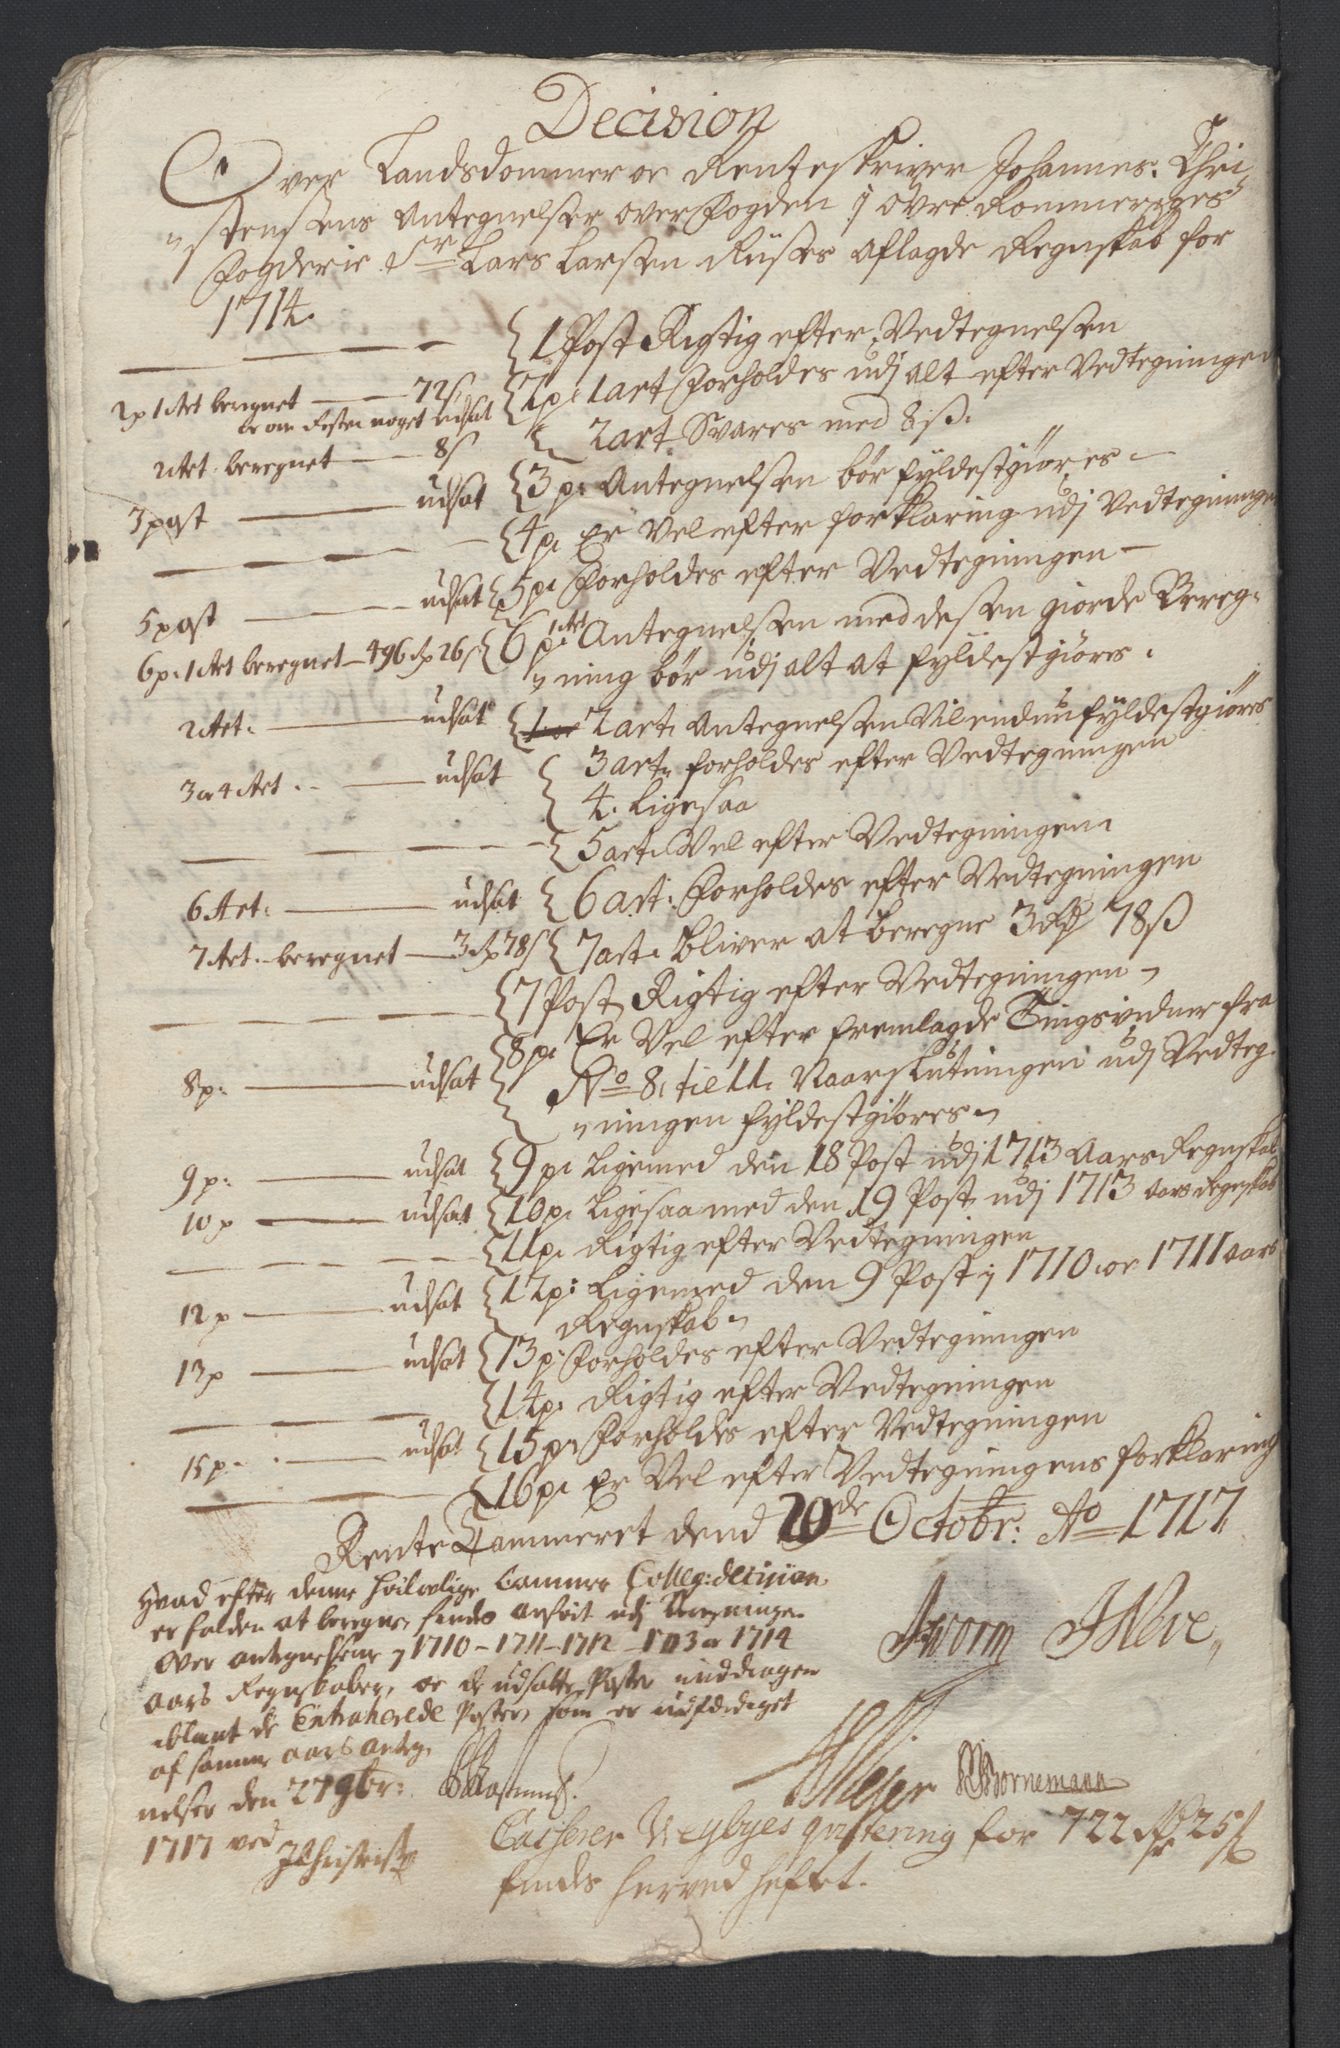 Decision
Over Landsdommer oc Renteskriver Johannes Chri-
stensens Antegnelser over Fogden j Øvre Rommeriges
Fogderie Sr Lars Larsen Riises aflagde Regnskab for
1714.
{ 1 Post Rigtig efter Vedtegnelsen
2p 1 Art beregnet — 72 s { 2p: 1 art Forholdes udj alt efter Vedtegningen
oc om Resten noget udsat
2 Art. beregnet — 8 s { 2 art Svares med 8 ß.
3 post — udsat { 3 p: Antegnelsen bør fyldestgiøres —
{ 4 p. Er Vel efter forklaring udj Vedtegningen
5 post — udsat { 5 p. Forholdes efter Vedtegningen —
6 p. 1 Art beregnet — 496 rdr 26 s { 6 p. 1 Art Antegnelsen med dessen giorde Bereg-
ning bør udj alt at fyldestgiøres.
2 Art. — udsat { 2 art. Antegnelsen Vil endnu fyldestgiøres
3 oc 4 Art. — udsat { 3 art. forholdes efter Vedtegningen
4. Ligesaa
{ 5 art. Vel efter Vedtegningen
6 Art. — udsat { 6 art. Forholdes efter Vedtegningen
7 Art. beregnet — 3 rdr 78 s { 7 art. bliver at beregne 3 rdr 78 ß
{ 7 Post Rigtig efter Vedtegningen
8 p: — udsat { 8 p. Er Vel efter fremlagde Tingsvidner fra
No 8 til 11. Naar Slutningen udj Vedteg-
ningen fyldestgiøres
9 p: — udsat { 9 p. Ligemed den 18 Post udj 1713 Aars Regnskab
10 p — udsat { 10 p. Ligesaa med den 19 Post udj 1713 Aars Regnskab
{ 11 p. Rigtig efter Vedtegningen
12 p — udsat { 12 p: Ligemed den 9 Post j 1710 oc 1711 Aars
Regnskab
13 p — udsat { 13 p. Forholdes efter Vedtegningen
{ 14 p. Rigtig efter Vedtegningen
15 p. — udsat { 15 p. Forholdes efter Vedtegningen
{ 16 p. Er Vel efter Vedtegningens forklaring
Rente Cammeret dend 20de Octobr: Ao 1717
Hvad efter denne høilovlige Cammer Colleg: decision
er falden at beregne, findes anført udj Beregningen
over Antegnelserne j 1710 – 1711 – 1712 – 1713 oc 1714
Aars Regnskaber, oc de udsatte Poster inddragen
iblant de Extraherede Poster, som er udfærdiget
af samme Aars Anteg-
nelser den 27 9br:
1717 ved
JChristens
Rasmus
Worm JWeve
Meyer Bornemann
Casserer Weybyes qvitering for 722 rdr 25 s
findes herved heftet.